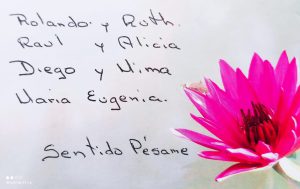 Rolando y Ruth.
Raul y Alicia
Diego y Nima
Maria Eugenia.
Sentido Pésame